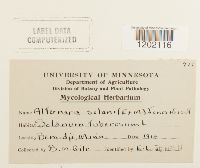 LABEL DATA
COMPUTERIZED
1202116
UNIVERSITY OF MINNESOTA
Department of Agriculture
Division of Botany and Plant Pathology
Mycological Herbarium
Name Alternaria solani (E & M)
Habitat Solanum tuberosum L
Locality Bemidji, Minn Date 1912
Collected by Identified by